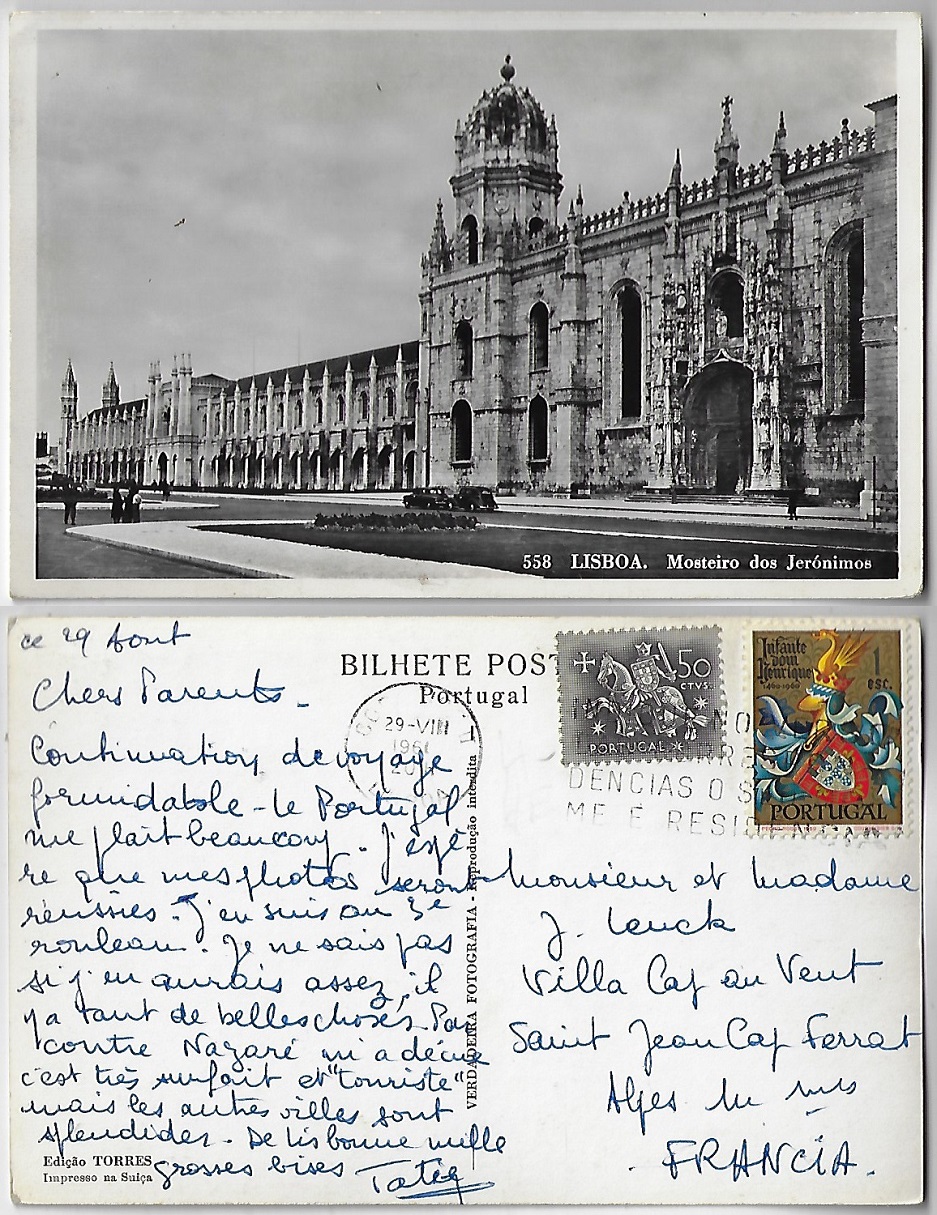 558 LISBOA. Mosteiro dos Jerónimos
ce 29 Aout
Chers Parents -
Continuation de voyage
formidable - le Portugal
me plait beaucoup. J'espè
re que mes photos seront
réussies. J'en suis au 3e
rouleau. Je ne sais pas
si j'en aurais assez, il
y a tant de belles choses. Par
contre Nazaré m'a déçue
c'est très surfait et "touriste"
mais les autres villes sont
splendides - De Lisbonne mille
grosses bises
BILHETE POST
Portugal
29-VIII
196
20
50
CTVS.
PORTUGAL
Infante
Dom
Henrique
1460-1960
1
esc.
PORTUGAL
DENCIAS O S
ME E RESI
VERDADEIRA FOTOGRAFIA - Reprodução interdita
Monsieur et Madame
J. Leuck
Villa Cap au Vent
Saint Jean Cap Ferrat
Alpes Mms
FRANCIA.
Edição TORRES
Impresso na Suiça